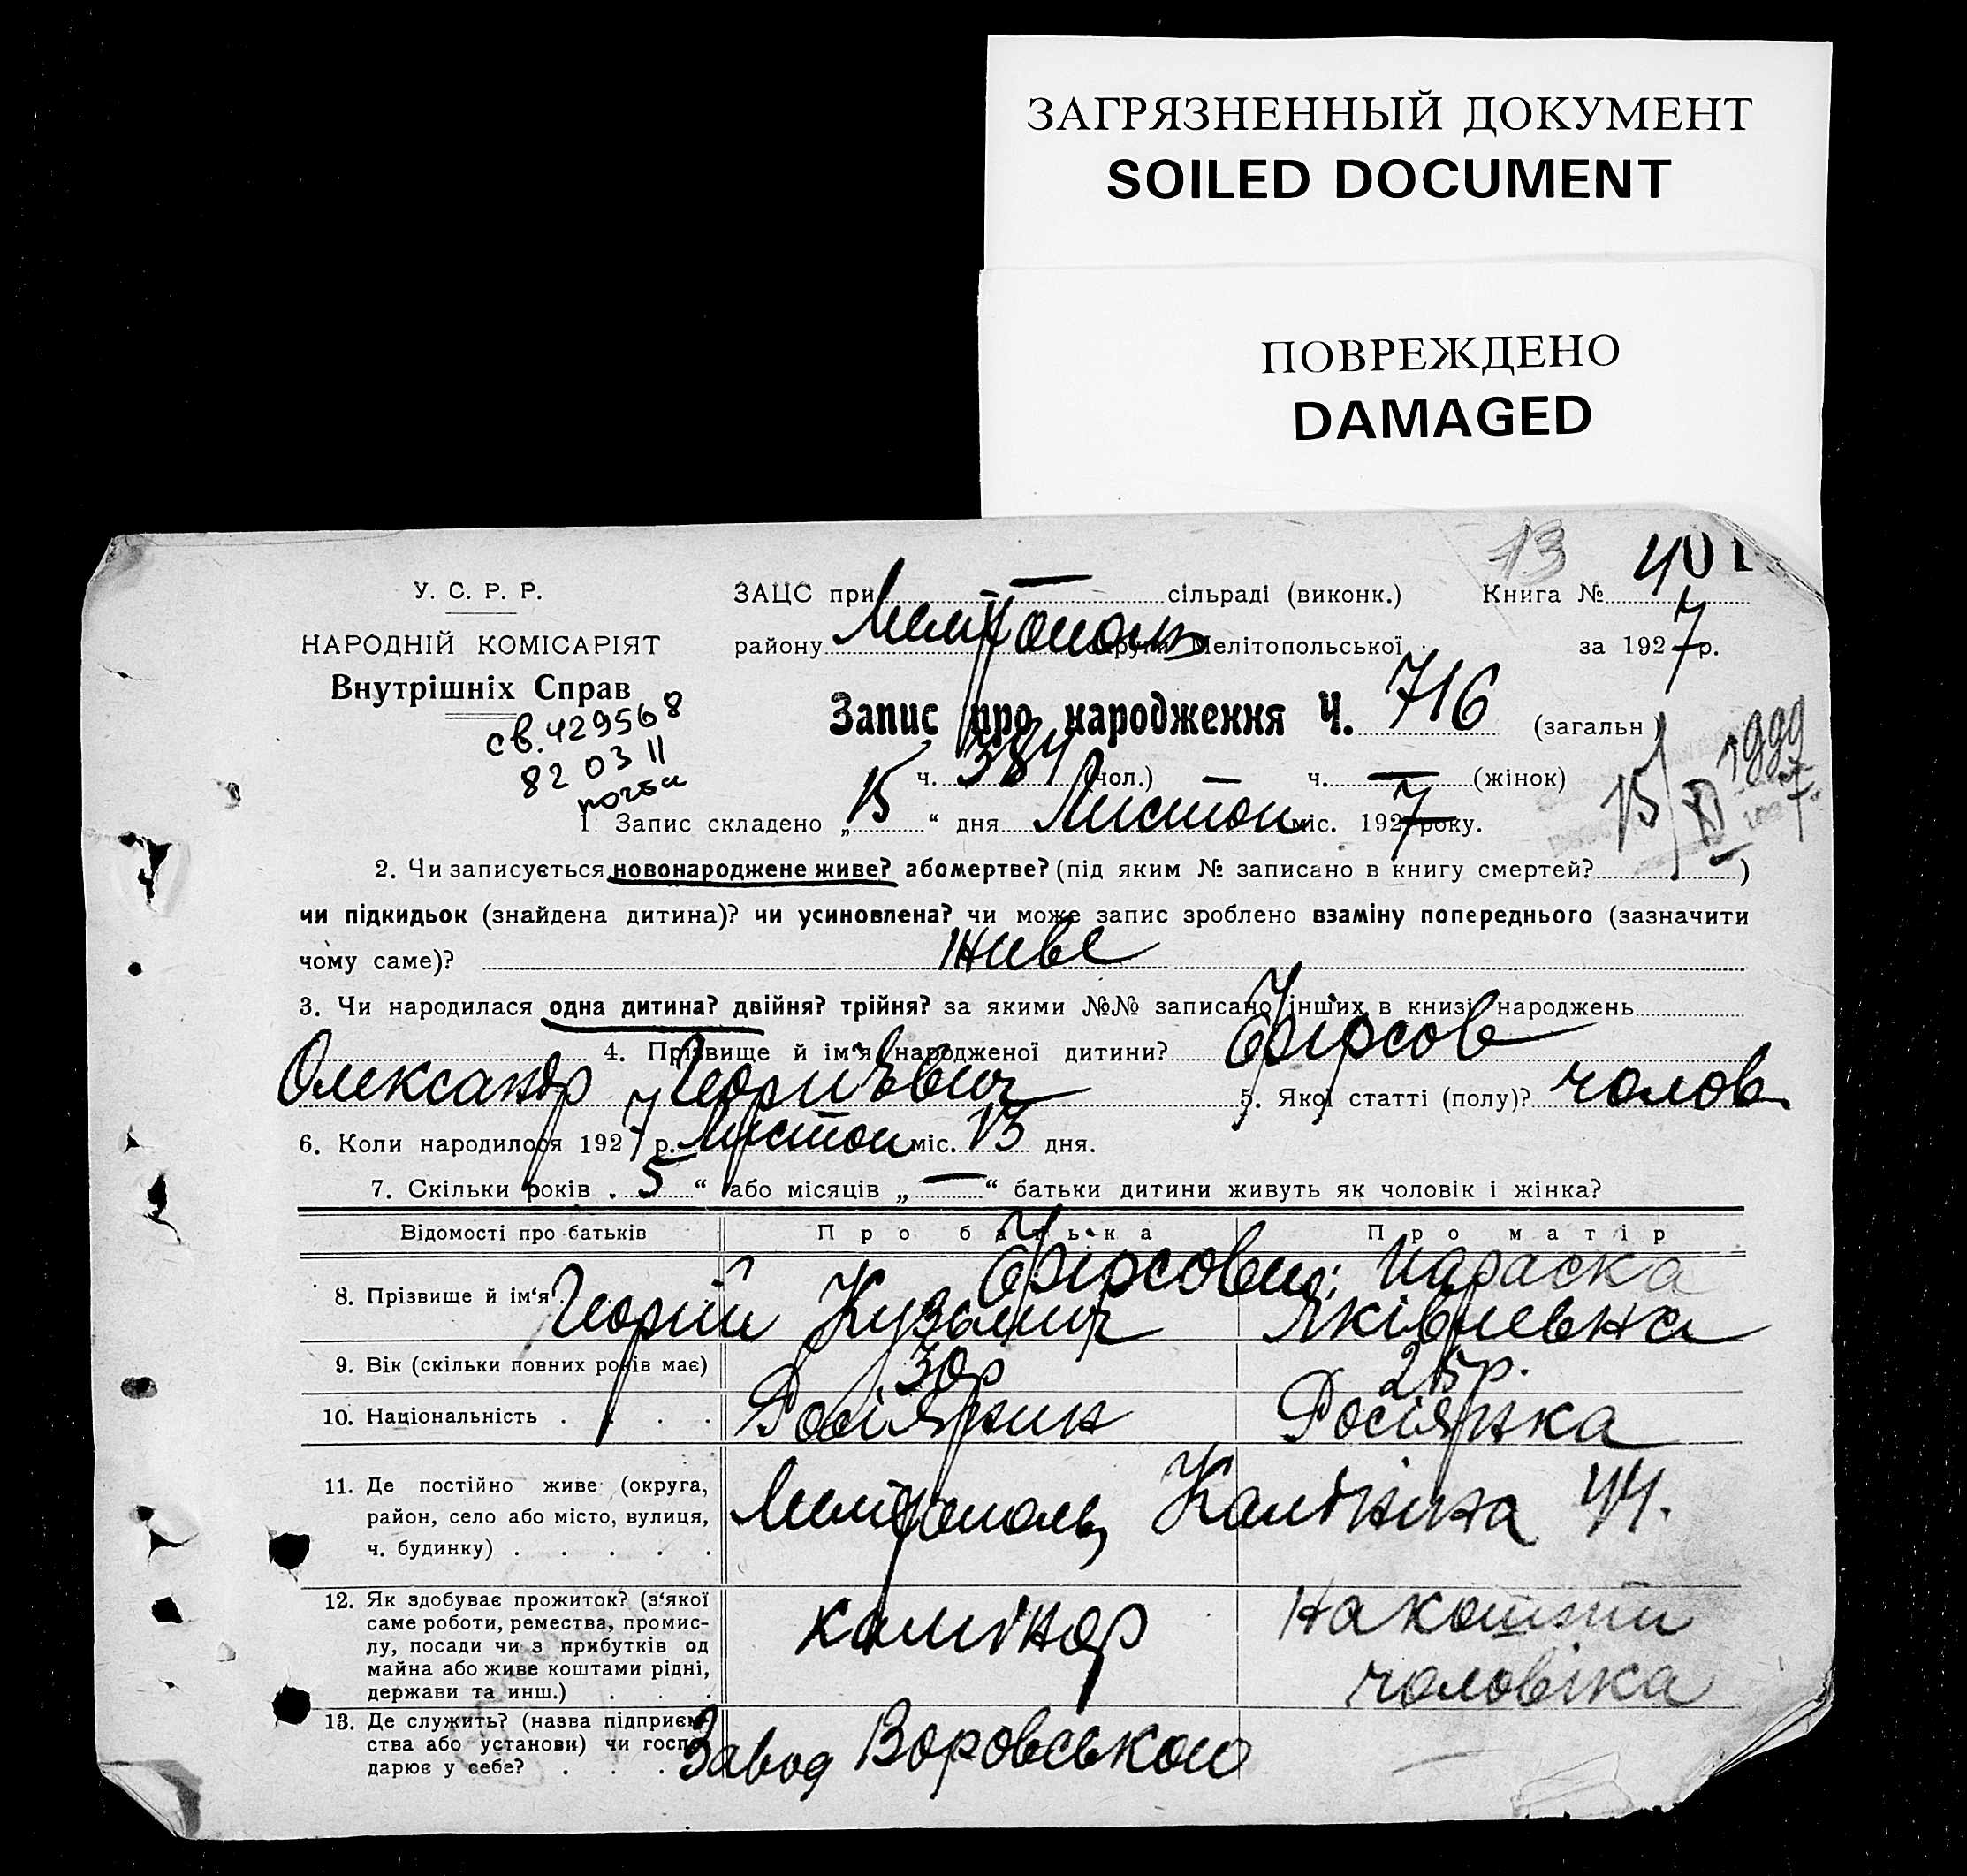 ЗАГРЯЗНЕННЫЙ ДОКУМЕНТ
SOILED DOCUMENT
ПОВРЕЖДЕНО
DAMAGED
13 401
У. С. Р. Р.
НАРОДНІЙ КОМІСАРІЯТ
Внутрішніх Справ
св. 429568
82 03 11
почта
ЗАЦС при — сільраді (виконк.) Книга №
району Мелітополь округи Мелітопольської за 1927 р.
Запис про народження Ч. 716 (загальн)
ч. 384 (чол.) ч. — (жінок)
15/XI 1927
1 Запис складено „15“ дня Листоп міс. 1927 року.
2. Чи записується новонароджене живе? або мертве? (під яким № записано в книгу смертей? )
чи підкидьок (знайдена дитина)? чи усиновлена? чи може запис зроблено взаміну попереднього (зазначити
чому саме)? живе
3. Чи народилася одна дитина? двійня? трійня? за якими №№ записано інших в книзі народжень
4. Прізвище й ім'я народженої дитини? Фірсов
Олександр Георгієвич 5. Якої статті (полу)? чолов
6. Коли народилося 1927 р. Листоп міс. 13 дня.
7. Скільки років „5“ або місяців „—“ батьки дитини живуть як чоловік і жінка?
Відомості про батьків Про батька Про матір
8. Прізвище й ім'я Фірсови: Георгій Кузьмич Параска Яківлевна
9. Вік (скільки повних років має) 30р 25р.
10. Національність . . . . Росіянин Росіянка
11. Де постійно живе (округа,
район, село або місто, вулиця,
ч. будинку) . . . . . Мелітополь, Калініна 44.
12. Як здобуває прожиток? (з'якої
саме роботи, ремества, промис-
лу, посади чи з прибутків од
майна або живе коштами рідні,
держави та инш.) . . . камінар на кошти чоловіка
13. Де служить? (назва підприєм-
ства або установи) чи госпо-
дарює у себе? . . . . Завод Воровського